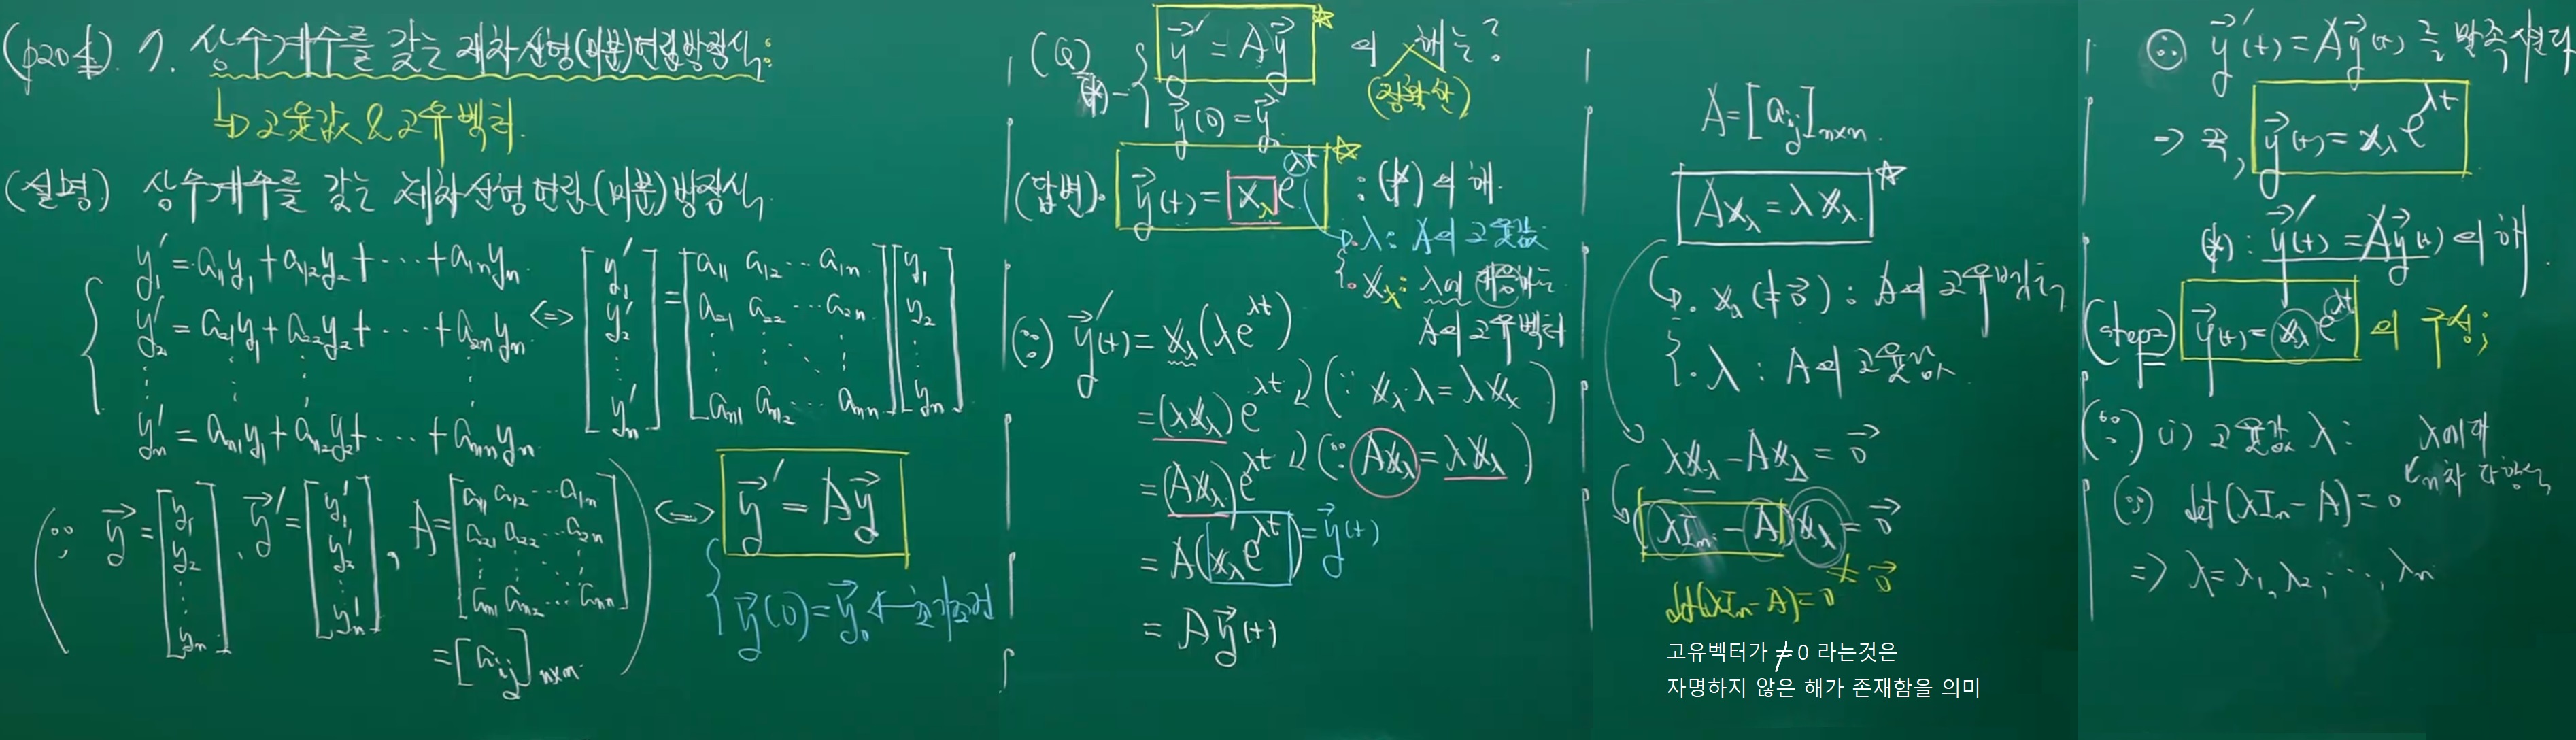 (p204). 7. 상수계수를 갖는 제차선형(미분)연립방정식:
↳ 고윳값 & 고유벡터.
(설명) 상수계수를 갖는 제차선형연립(미분)방정식.
y₁′ = a₁₁y₁ + a₁₂y₂ + ⋯ + a₁ₙyₙ
y₂′ = a₂₁y₁ + a₂₂y₂ + ⋯ + a₂ₙyₙ
⋮ ⋮ ⋮ ⋮
yₙ′ = aₙ₁y₁ + aₙ₂y₂ + ⋯ + aₙₙyₙ
<=> [y₁′ y₂′ ⋮ yₙ′] = [a₁₁ a₁₂ ⋯ a₁ₙ
a₂₁ a₂₂ ⋯ a₂ₙ
⋮ ⋮ ⋱ ⋮
aₙ₁ aₙ₂ ⋯ aₙₙ] [y₁ y₂ ⋮ yₙ]
(∵ y⃗ = [y₁ y₂ ⋮ yₙ], y⃗′ = [y₁′ y₂′ ⋮ yₙ′], A = [a₁₁ a₁₂ ⋯ a₁ₙ
a₂₁ a₂₂ ⋯ a₂ₙ
⋮ ⋮ ⋱ ⋮
aₙ₁ aₙ₂ ⋯ aₙₙ]
= [aᵢⱼ]ₙₓₙ)
<=> y⃗′ = Ay⃗
y⃗(0) = y⃗₀ ← 초기조건
(Q) y⃗′ = Ay⃗ 의 해는?
(*)- y⃗(0) = y⃗₀
(답변). y⃗(t) = x_λ e^{λt} : (*)의 해.
· λ: A의 고윳값
· x_λ: λ에 대응하는
A의 고유벡터
(∵) y⃗′(t) = x_λ(λe^{λt})
= (λx_λ)e^{λt} (∵ x_λ·λ = λx_λ)
= (Ax_λ)e^{λt} (∵ Ax_λ = λx_λ)
= A(x_λ e^{λt}) = y⃗(t)
= Ay⃗(t)
A = [aᵢⱼ]ₙₓₙ.
Ax_λ = λx_λ.
· x_λ(≠0⃗) : A의 고유벡터
· λ : A의 고윳값.
λx_λ - Ax_λ = 0⃗
(λIₙ - A)x_λ = 0⃗
≠ 0⃗
det(λIₙ - A) = 0
고유벡터가 ≠ 0 라는것은
자명하지 않은 해가 존재함을 의미
∴ y⃗′(t) = Ay⃗(t)를 만족시킨다
⇒ 즉, y⃗(t) = x_λ e^{λt}
(*) : y⃗′(t) = Ay⃗(t)의 해.
(step2) y⃗(t) = x_λ e^{λt} 의 구성;
(∵) (i) 고윳값 λ: λ에 대
n차 다항식
(∵) det(λIₙ - A) = 0
⇒ λ = λ₁, λ₂, ⋯, λₙ